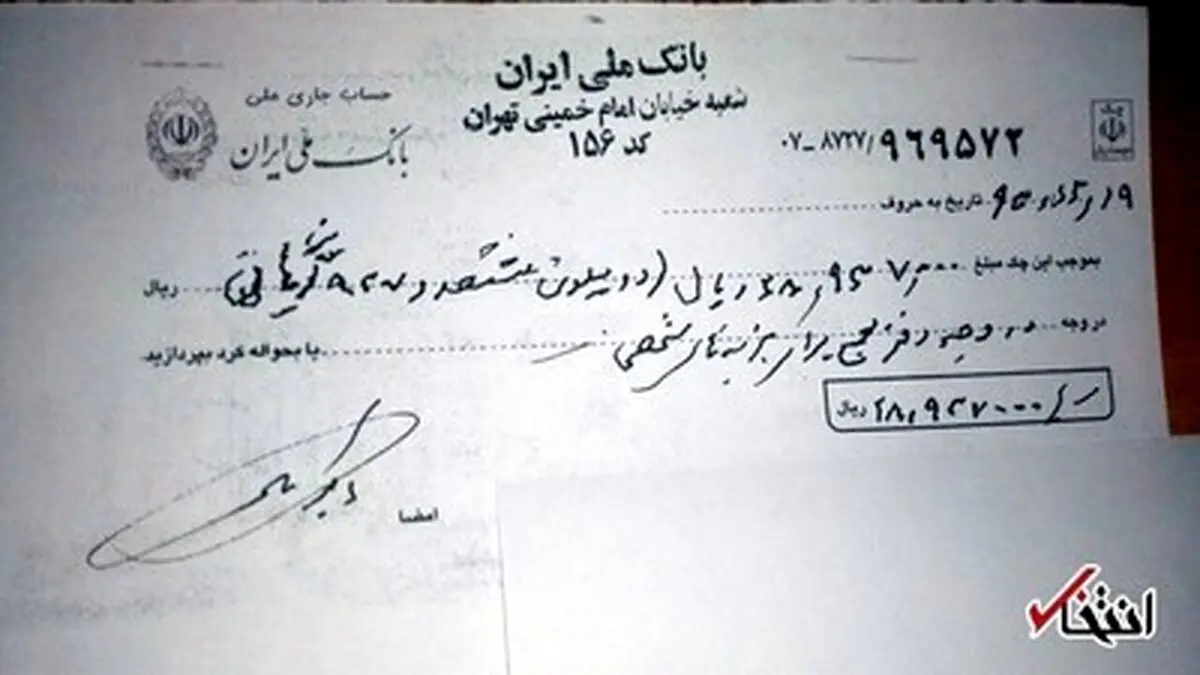 بانک ملی ایران
شعبه خیابان امام خمینی تهران
کد ۱۵۶
حساب جاری ملی
بانک ملی ایران
چک
۰۷-۸۷۲۷/۹۶۹۵۷۲
تاریخ به حروف
بموجب این چک مبلغ ۲۸,۹۴۷,۰۰۰ ریال (دو میلیون و ریال
در وجه در وجه دفتر برای هزینه‌های شخصی یا بحواله کرد بپردازید
۲۸,۹۴۷۰۰۰ ریال
امضا
انتخاب